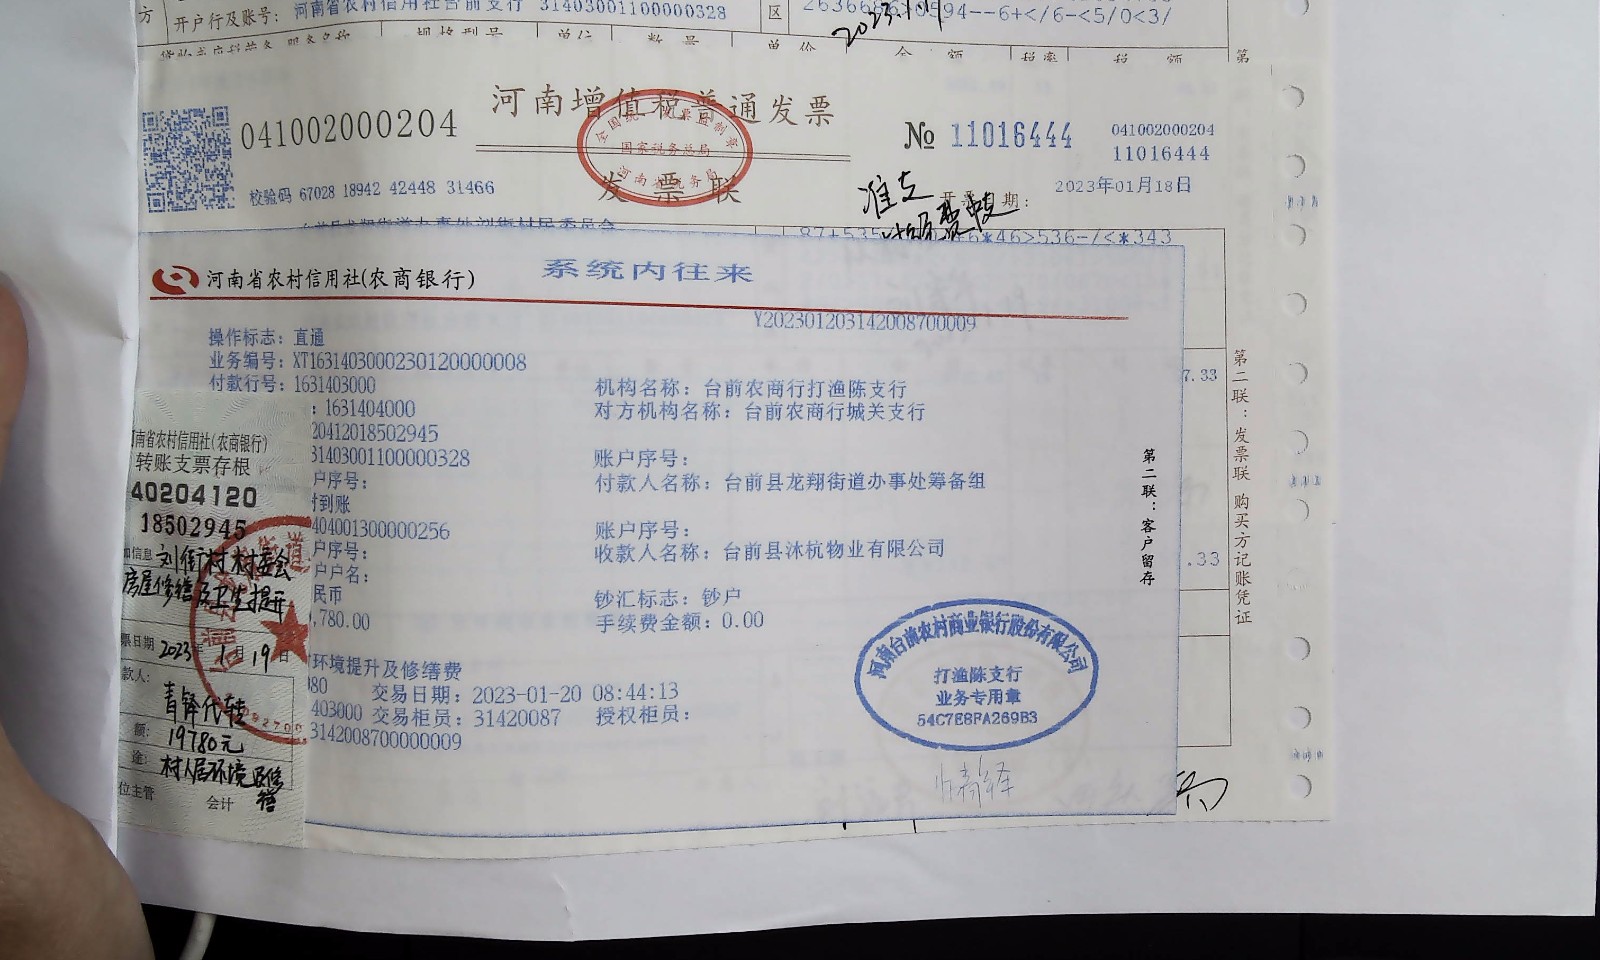 方
开户行及账号：河南省农村信用社台前支行 31403001100000328
区
594--6+</6-<5/0<3/
2023.1.19
规格型号 单位 数量 单价 金额 税率 税额
第
河南增值税普通发票
041002000204
全国统一发票监制章
国家税务总局
河南省税务局
发票联
№ 11016444
041002000204
11016444
校验码 67028 18942 42448 31466
准支
2023年01月18日
期：
街道办事处刘街村民委员会
6*46>536-/<*343
河南省农村信用社(农商银行)
系统内往来
Y202301203142008700009
操作标志：直通
业务编号：XT16314030002301200000008
付款行号：1631403000
机构名称：台前农商行打渔陈支行
：1631404000
对方机构名称：台前农商行城关支行
20412018502945
31403001100000328
账户序号：
户序号：
付款人名称：台前县龙翔街道办事处筹备组
到账
404001300000256
账户序号：
户序号：
收款人名称：台前县沐杭物业有限公司
户户名：
民币
钞汇标志：钞户
,780.00
手续费金额：0.00
环境提升及修缮费
080
交易日期：2023-01-20 08:44:13
403000
交易柜员：31420087
授权柜员：
3142008700000009
第二联：客户留存
河南台前农村商业银行股份有限公司
打渔陈支行
业务专用章
54C7E8FA269B3
7.33
.33
第二联：发票联 购买方记账凭证
南省农村信用社(农商银行)
转账支票存根
40204120
18502945
加信息 刘街村村委会
房屋修缮及卫生提升
票日期 2023年1月19日
款人：
青铎代转
额：19780元
途：村人居环境及修缮
位主管 会计